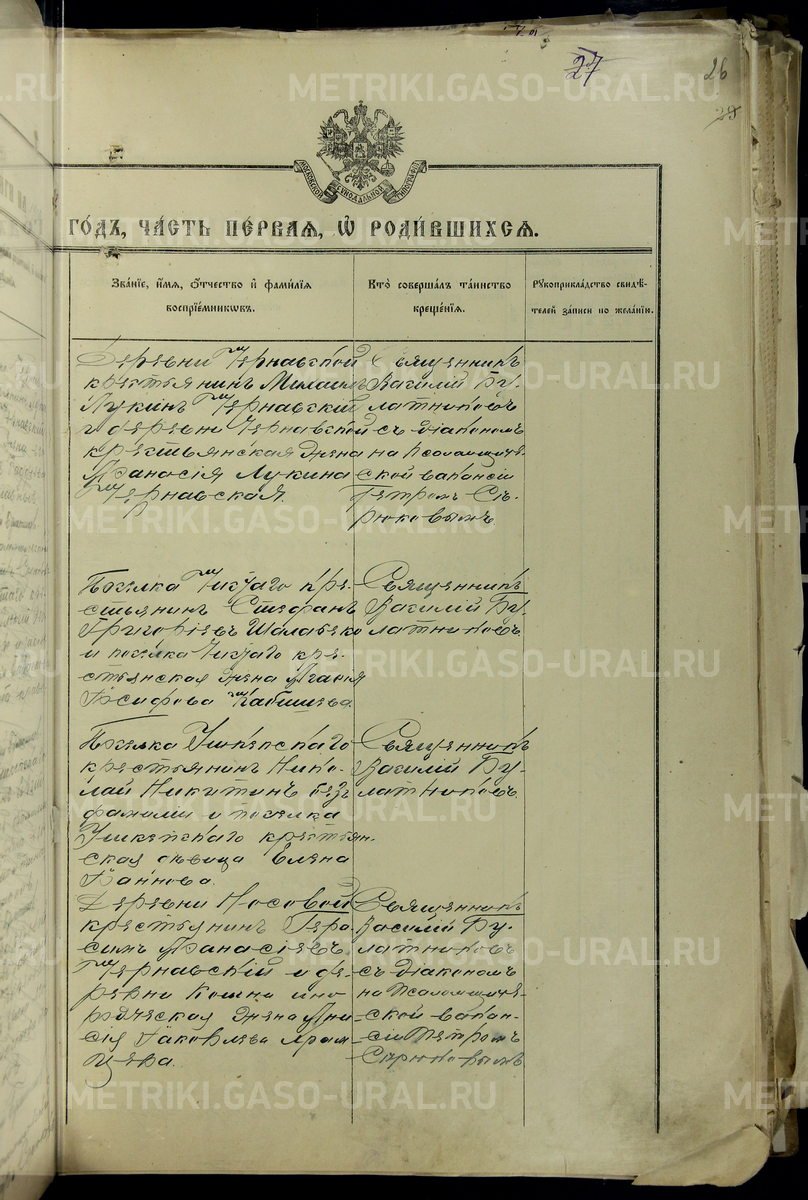 27
26
28
МОСКОВСКОЙ СѴНОДАЛЬНОЙ ТИПОГРАФІИ
ГОДЪ, ЧАСТЬ ПЕРВАЯ, Ѡ РОДИВШИХСЯ.
Званіе, имя, отчество и фамилія воспріемниковъ.
Кто совершалъ таинство крещенія.
Рукоприкладство свидѣтелей записи по желанію.
Деревни Чернавской
крестьянинъ Михаилъ
Лукинъ Чернавскій
и деревни Чернавской
крестьянская жена
Афанасія Лукина
Чернавская.
Священникъ
Василій Бу-
латниковъ
съ діакономъ
на псаломщиче-
ской вакансіи
Петромъ Сѣ-
рюковымъ
Поселка кре-
стьянинъ Стефанъ
Григорьевъ
и поселка кре-
стьянская жена
Іосифова
Священникъ
Василій Бу-
латниковъ
Поселка
крестьянинъ Нико-
лай Никитинъ безъ
фамиліи и поселка
крестьян-
ская дѣвица Елена
Священникъ
Василій Бу-
латниковъ
Деревни Носовой
крестьянинъ Гера-
симъ Афанасіевъ
Чернавскій и де-
ревни ино-
родческая жена
Іаковлева
Священникъ
Василій Бу-
латниковъ
съ діакономъ
на псаломщиче-
ской вакан-
сіи Петромъ
Сѣрюковымъ
METRIKI.GASO-URAL.RU